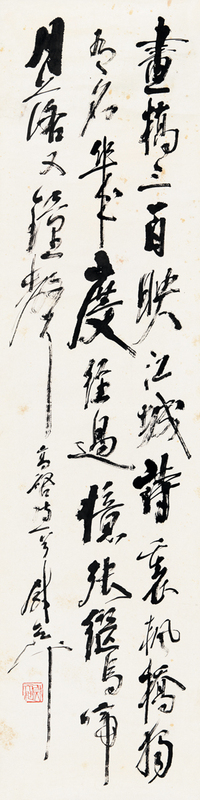 畫橋三百映江城詩裏楓橋獨
有名幾度經過憶張繼烏啼
月落又鐘聲 高啓詩